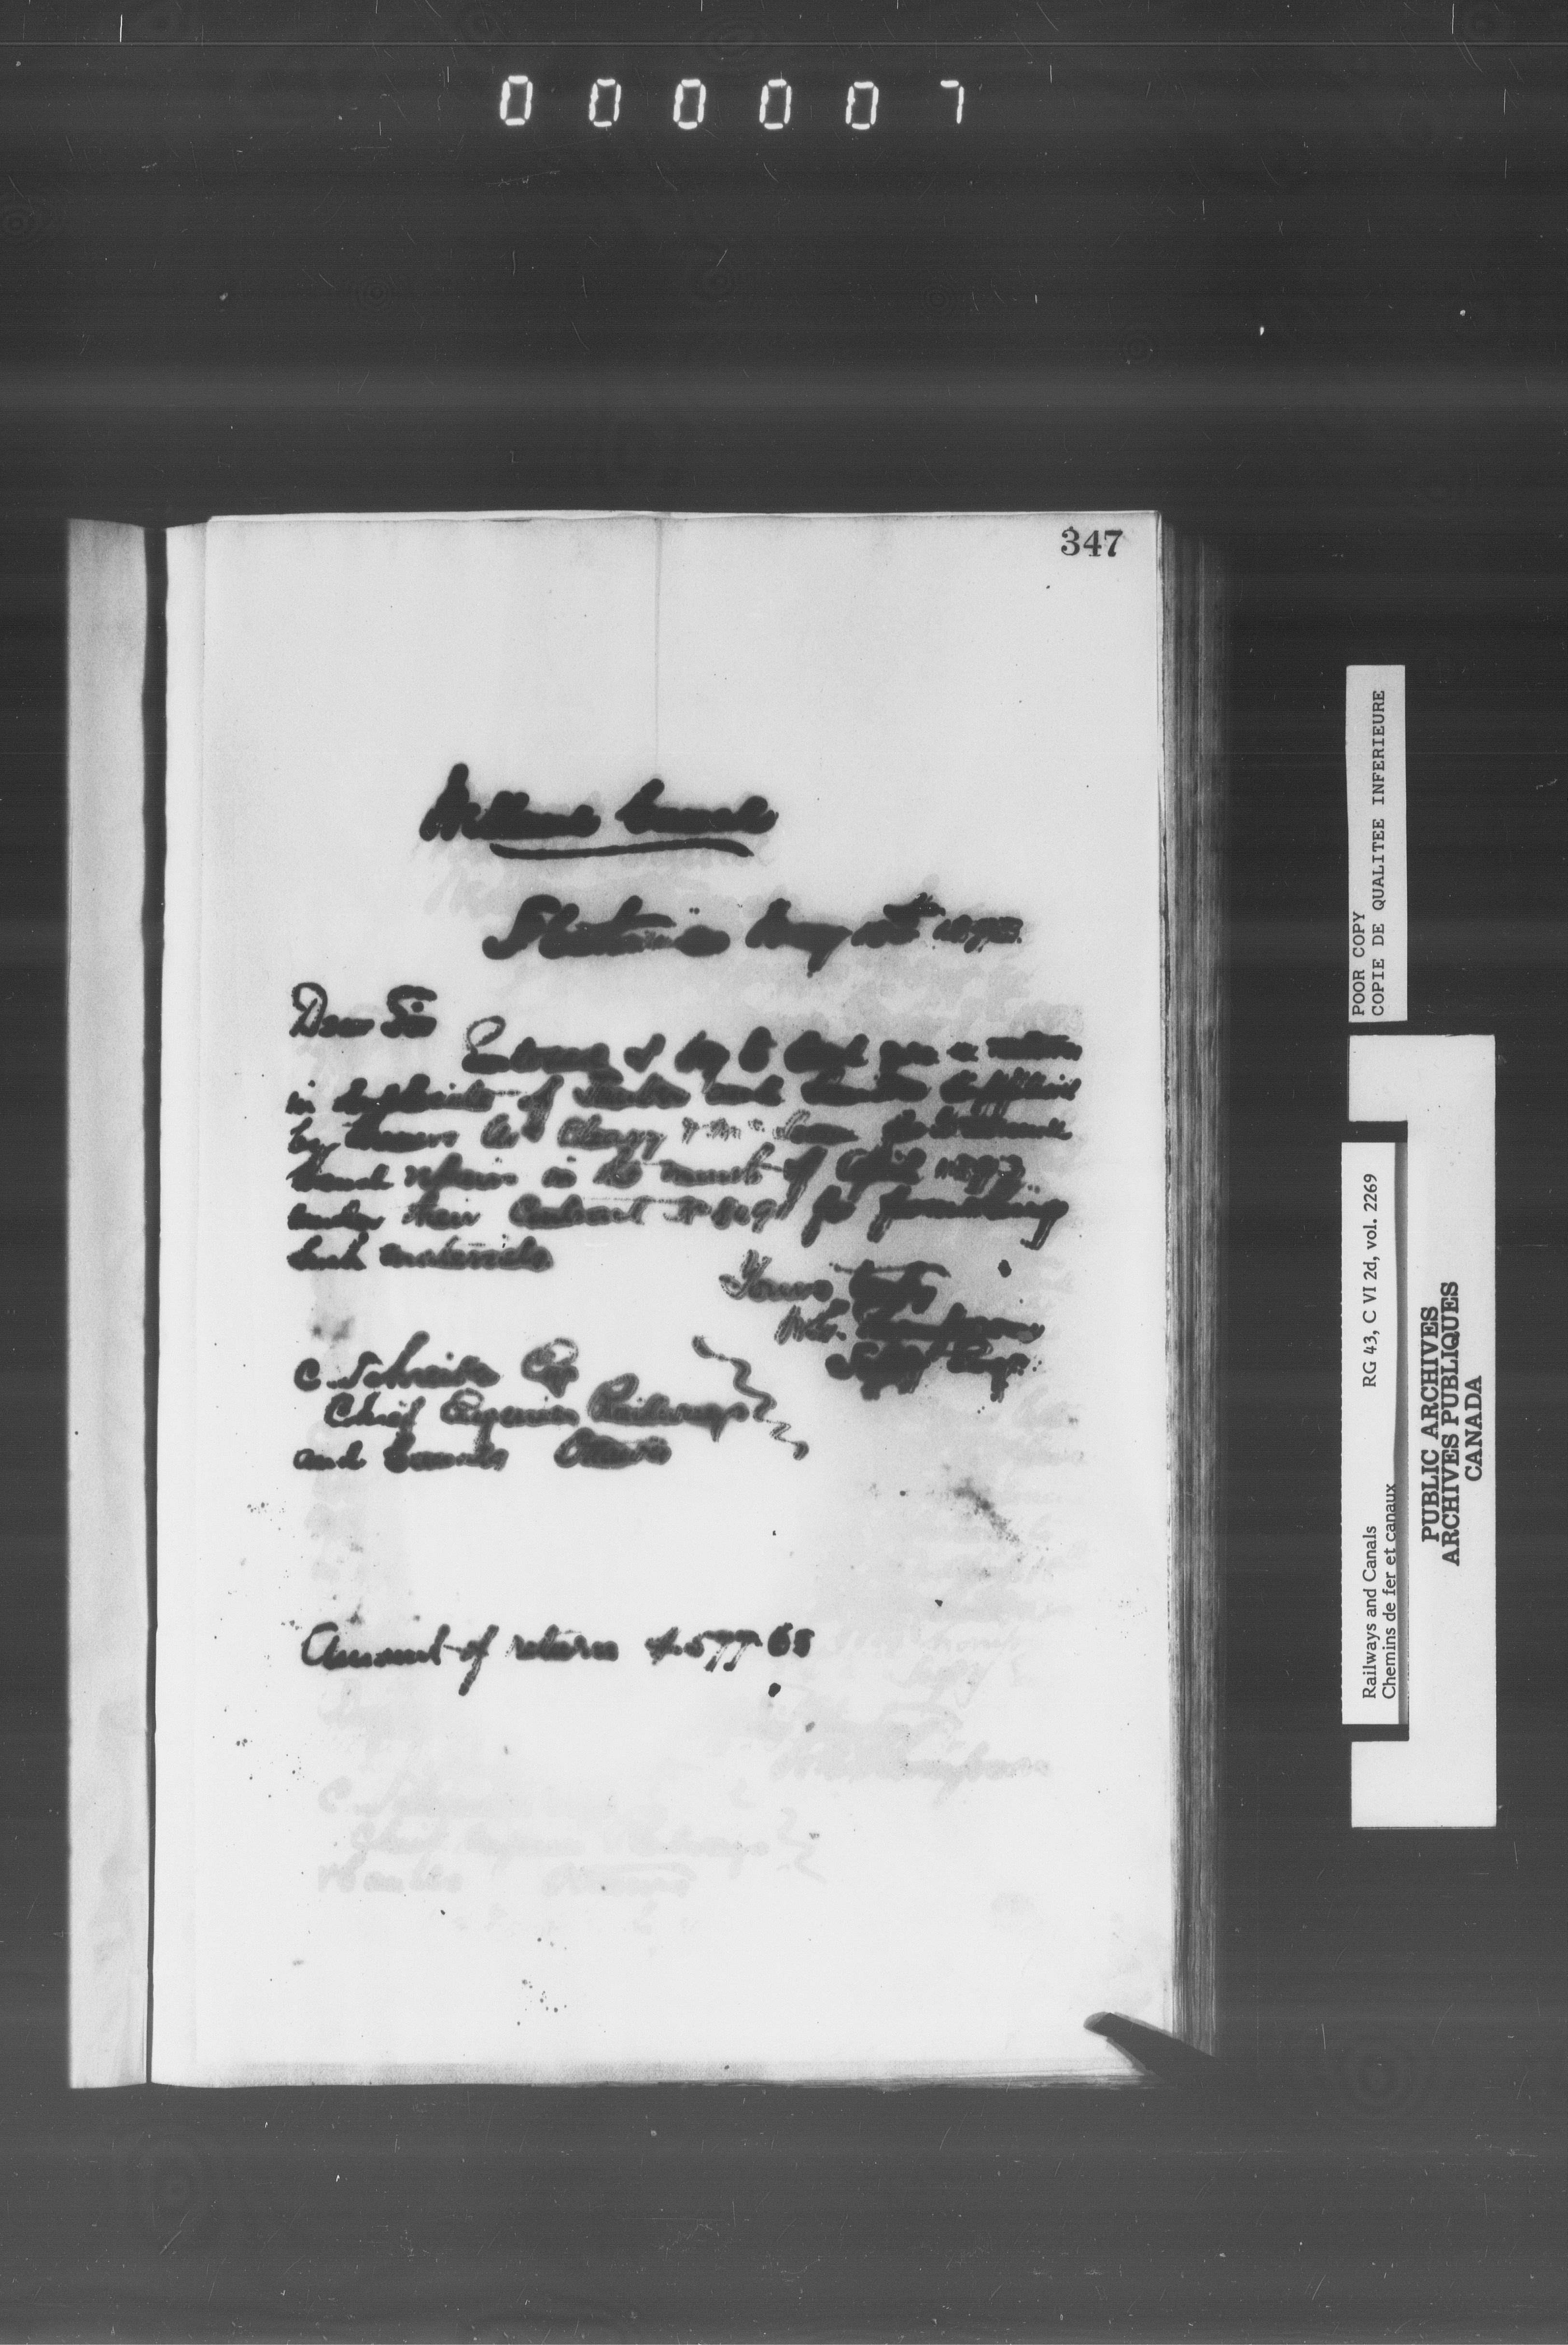 000007
347
Welland Canal
St Catharines May 10th 1893
Dear Sir
Enclosed I beg to hand you a return
in duplicate of Timber and Lumber supplied
by Messrs Clergy for Welland
Canal repairs in the month of April 1893
under their Contract No for furnishing
such materials
Yours truly
W.G. Thompson
Supt Engr
C Schreiber Esq
Chief Engineer Railways
and Canals Ottawa
Amount of return $577.68
C Schreiber
Chief Engineer Railways
& Canals Ottawa
POOR COPY
COPIE DE QUALITEE INFERIEURE
Railways and Canals RG 43, C VI 2d, vol. 2269
Chemins de fer et canaux
PUBLIC ARCHIVES
ARCHIVES PUBLIQUES
CANADA